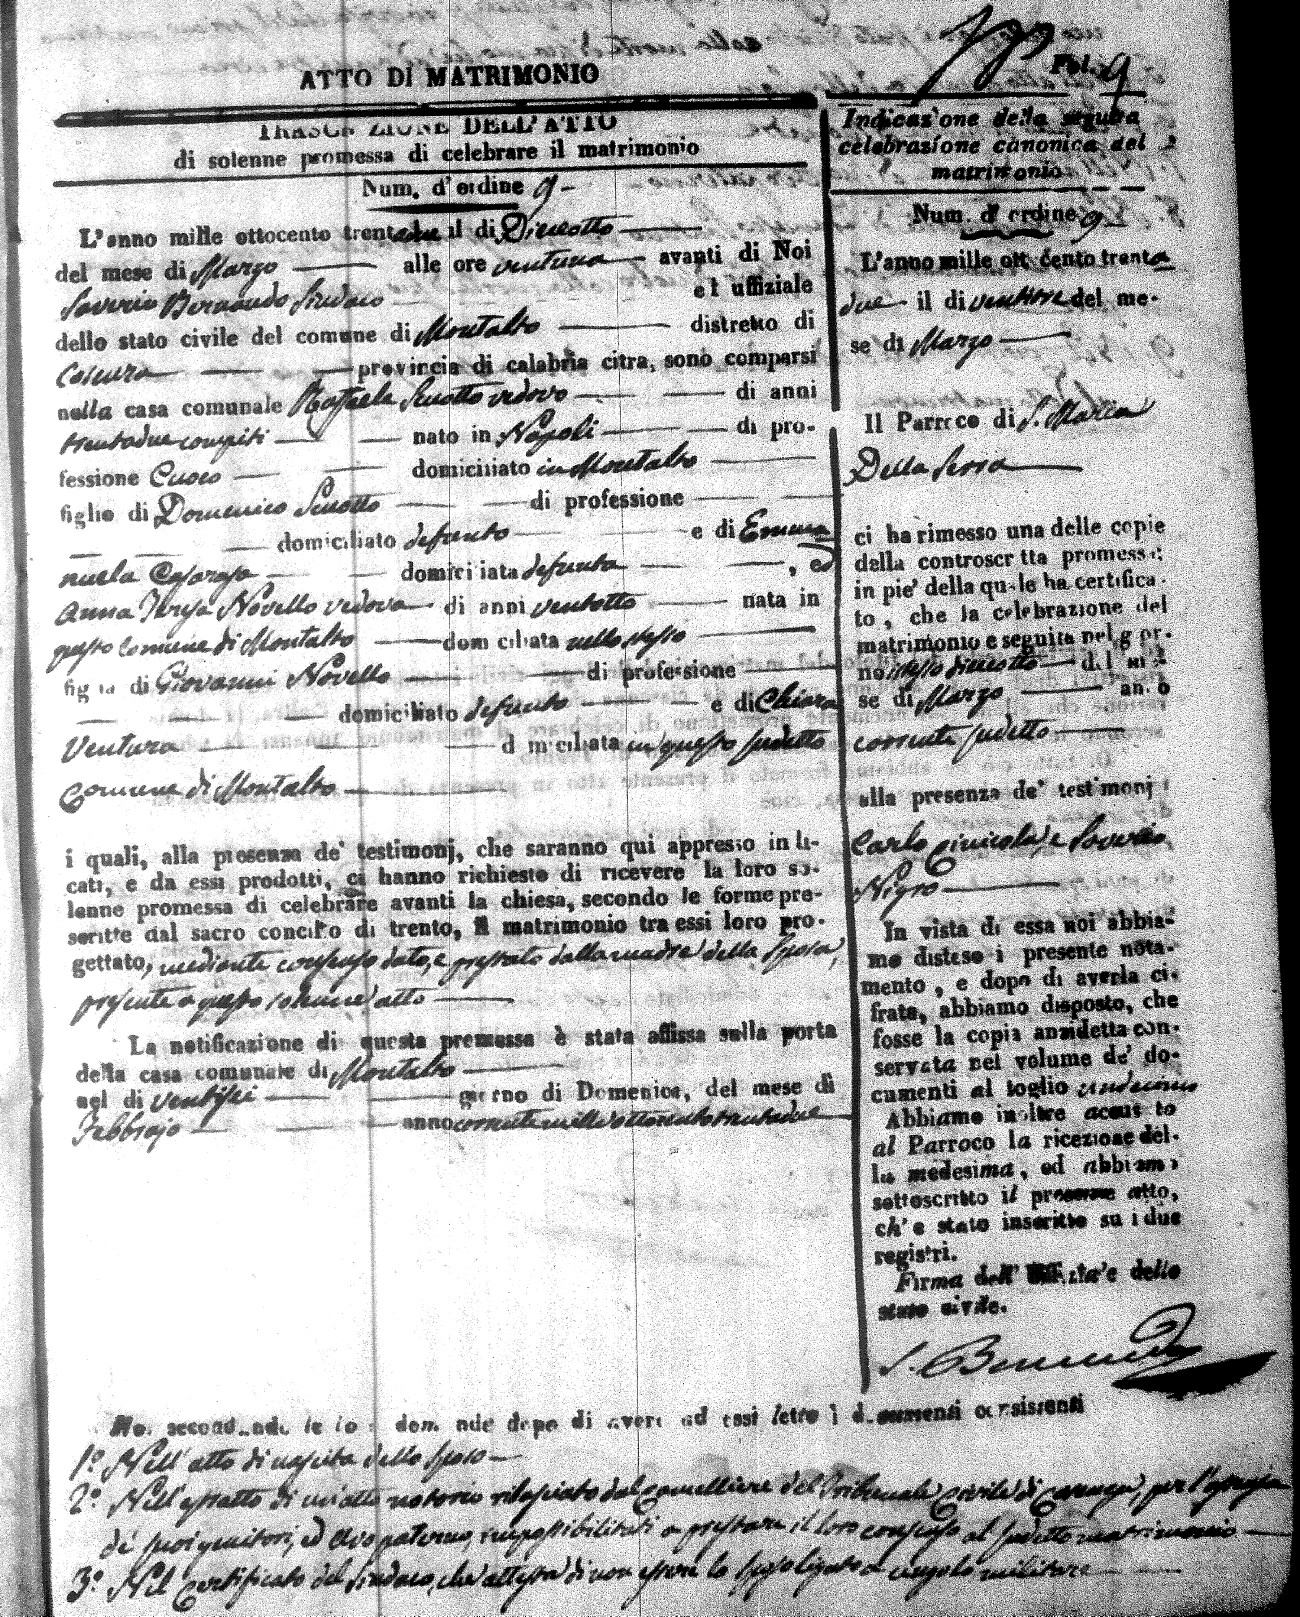 ATTO DI MATRIMONIO
Fol. 9
TRASCRIZIONE DELL'ATTO
di solenne promessa di celebrare il matrimonio
Num. d'ordine 9
L'anno mille ottocento trentadue il di Dieciotto
del mese di Marzo alle ore ventuna avanti di Noi
Saverio Bernaudo Sindaco ed uffiziale
dello stato civile del comune di Montalto distretto di
Cosenza provincia di calabria citra, sono comparsi
nella casa comunale Raffaele vedovo di anni
trentadue compiti nato in Napoli di pro-
fessione Cuoco domiciliato in Montalto
figlio di Domenico di professione
domiciliato defunto e di Emma
nuela domiciliata defunta , ed
Anna Teresa Novello vedova di anni ventotto nata in
questo Comune di Montalto domiciliata nello stesso
figlia di Giovanni Novello di professione
domiciliato defunto e di Chiara
Ventura domiciliata in questo sudetto
Comune di Montalto
i quali, alla presenza de' testimonj, che saranno qui appresso indi-
cati, e da essi prodotti, ci hanno richiesto di ricevere la loro so-
lenne promessa di celebrare avanti la chiesa, secondo le forme pre-
scritte dal sacro concilio di trento, il matrimonio tra essi loro pro-
gettato, mediante consenso dato, e prestato dalla madre della sposa,
presente a questo solenne atto
La notificazione di questa premessa è stata affissa sulla porta
della casa comunale di Montalto
nel di ventisei giorno di Domenica, del mese di
Febbrajo anno corrente mille ottocento trentadue
Indicazione della seguita
celebrazione canonica del
matrimonio
Num. d'ordine 9
L'anno mille ottocento trenta
due il di ventitre del me-
se di Marzo
Il Parroco di S. Maria
Della Serra
ci ha rimesso una delle copie
della controscritta promessa:
in piè della quale ha certifica-
to, che la celebrazione del
matrimonio e seguita nel gior-
no istesso dieciotto del me-
se di Marzo anno
corrente sudetto
alla presenza de' testimonj
Carlo e Saverio
Nigro
In vista di essa noi abbia-
mo disteso il presente nota-
mento, e dopo di averla ci-
frata, abbiamo disposto, che
fosse la copia anzidetta con-
servata nel volume de' do-
cumenti al foglio undecimo
Abbiamo inoltre accusato
al Parroco la ricezione del-
la medesima, ed abbiamo
sottoscritto il presente atto,
ch'e stato inscritto su i due
registri.
Firma dell' Uffiziale dello
stato civile.
S. Bernaudo
Noi secondando le loro domande dopo di avere ad essi letto i documenti consistenti
1º Nell'atto di nascita dello sposo
2º Nell'estratto di un'atto notorio rilasciato dal Cancelliere del Tribunale Civile di Cosenza, per
de' suoi genitori, ed avo paterno, impossibilitati a prestare il loro consenso al sudetto matrimonio
3º Nel Certificato del Sindaco, che attesta di non essere lo sposo ligato a vincolo militare